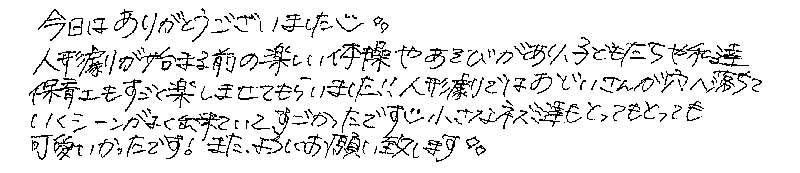 今日はありがとうございました♡♪
人形劇りが始まる前の楽しい体操やあそびがあり、子どもたちや私達
保育士もすごく楽しませてもらいました!! 人形劇りではおじいさんが穴へ落ちて
いくシーンがよく出来ていて、すごかったです♡小さなネズミ達もとってもとっても
可愛いかったです! また、よろしくお願い致します♪